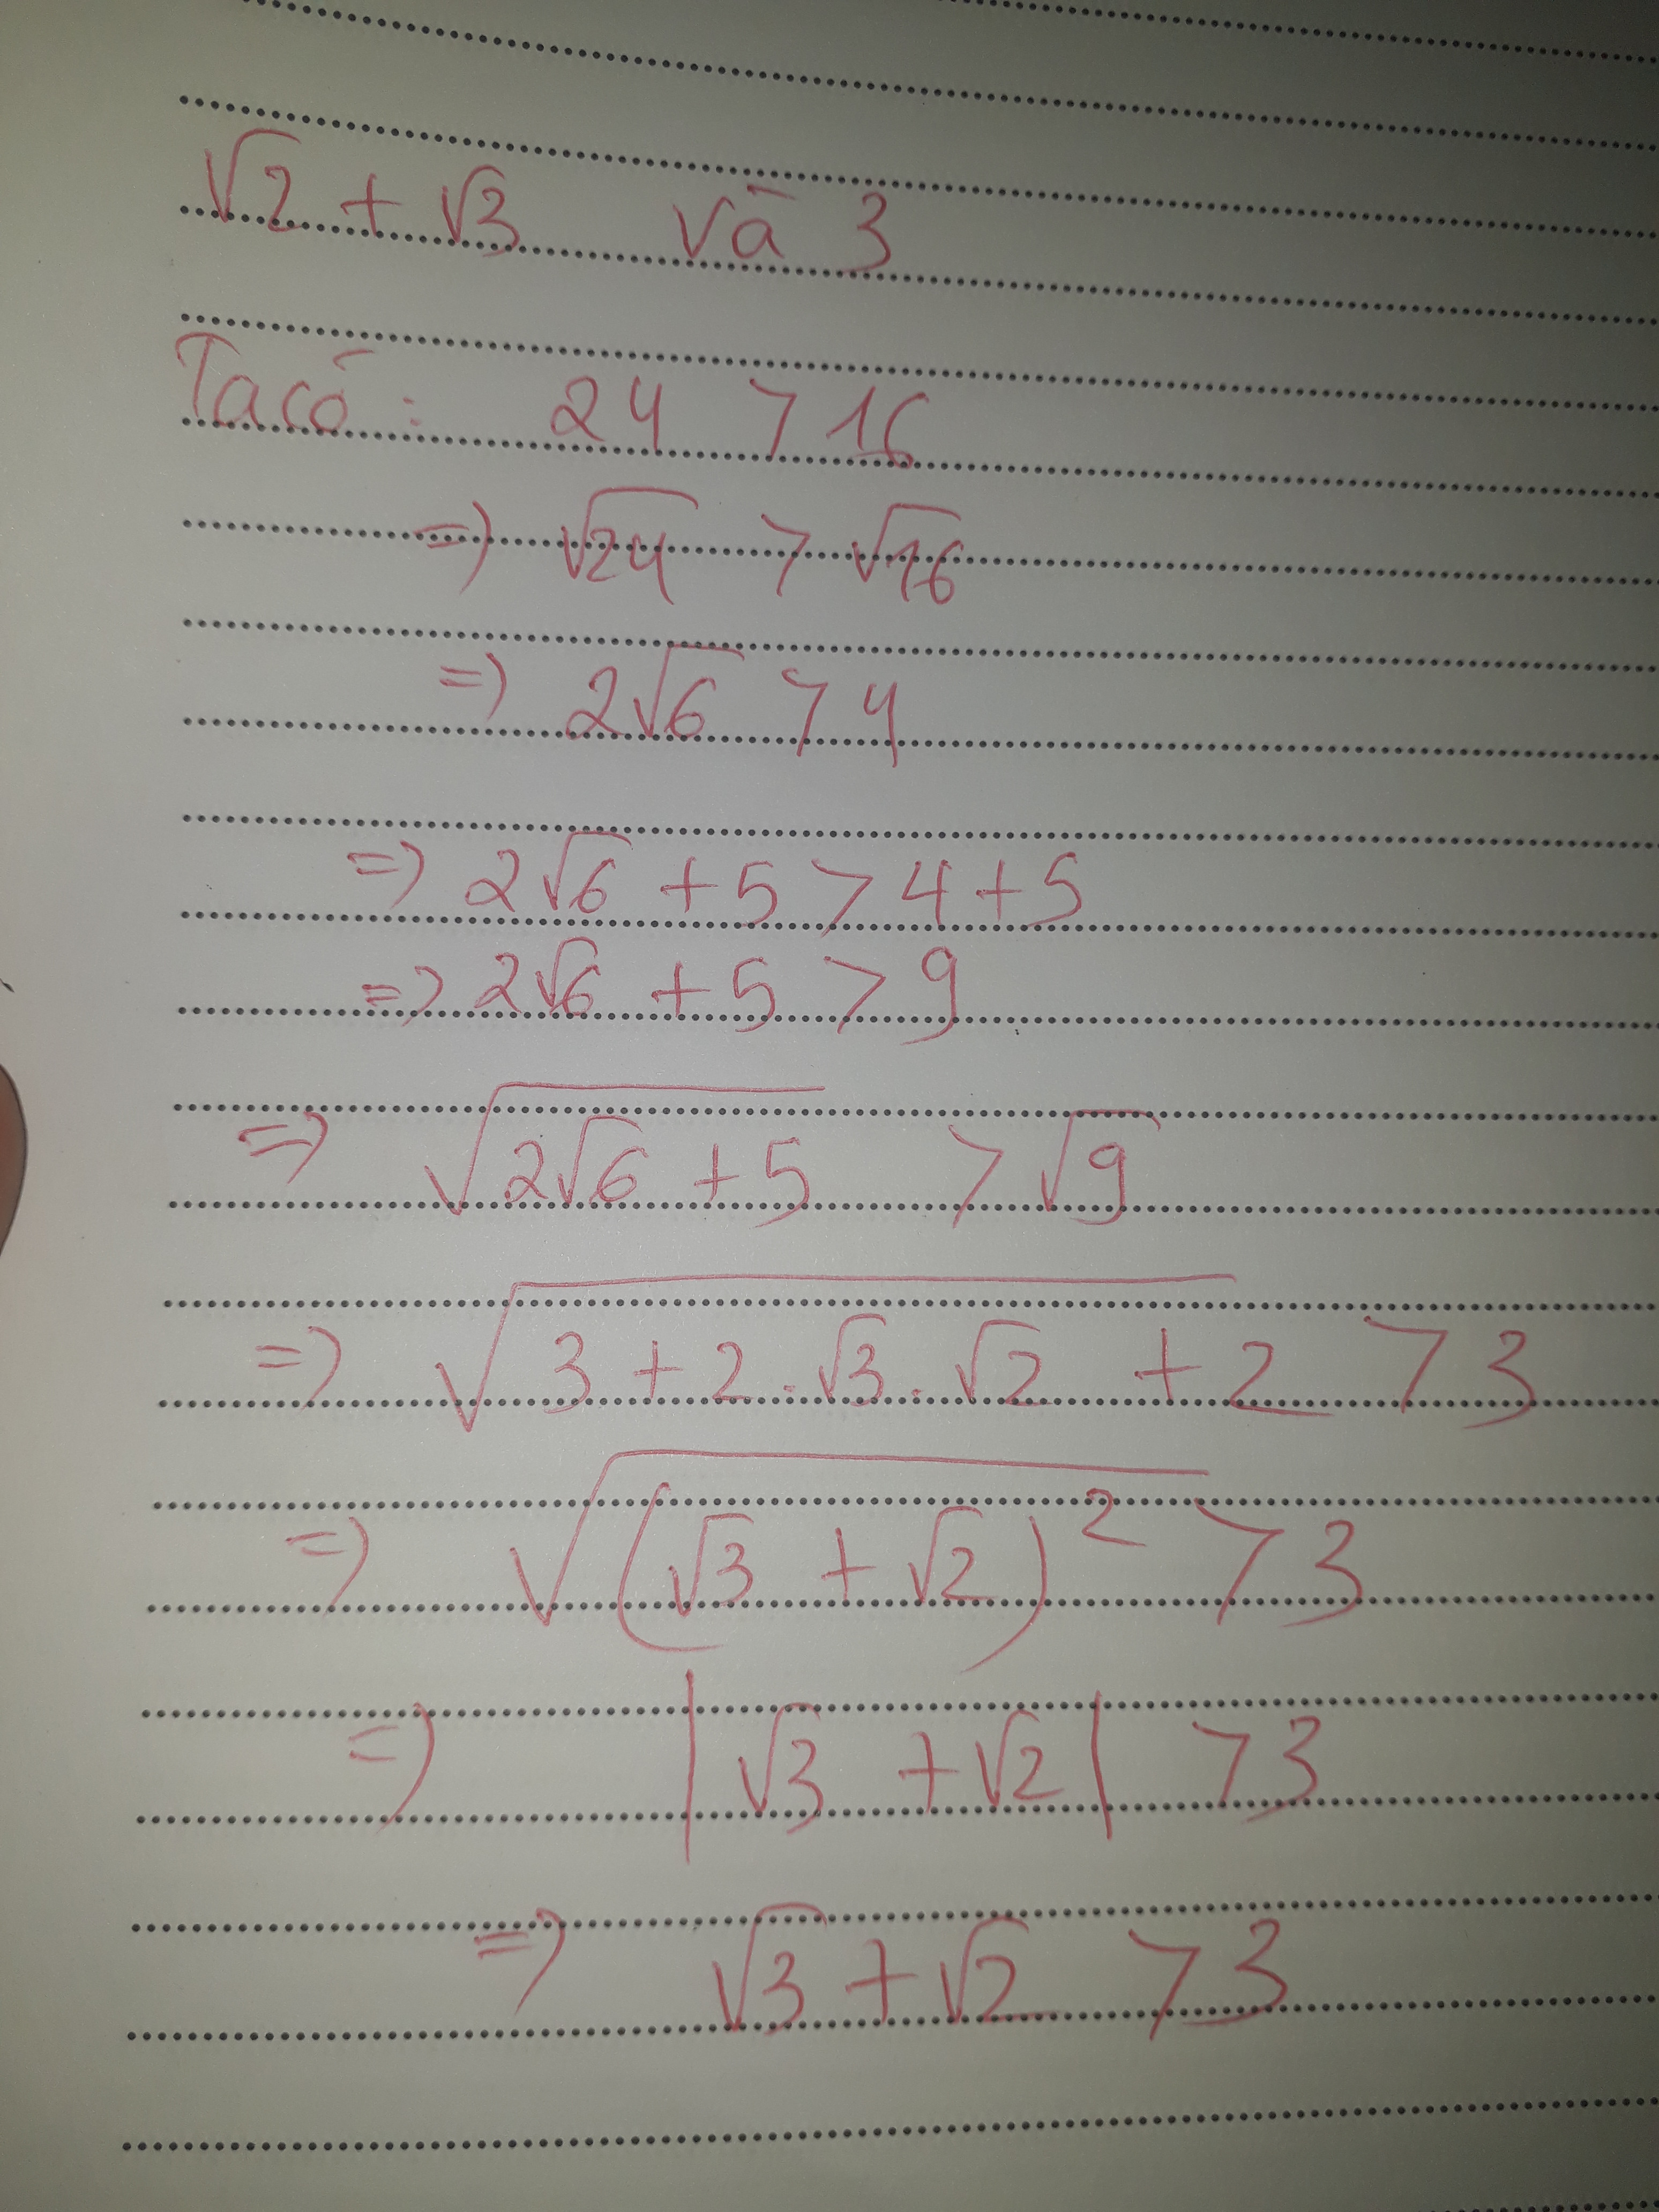 √2 + √3 và 3
Ta có: 24 > 16
=> √24 > √16
=> 2√6 > 4
=> 2√6 + 5 > 4 + 5
=> 2√6 + 5 > 9
=> √(2√6 + 5) > √9
=> √(3 + 2.√3.√2 + 2) > 3
=> √((√3 + √2)²) > 3
=> |√3 + √2| > 3
=> √3 + √2 > 3